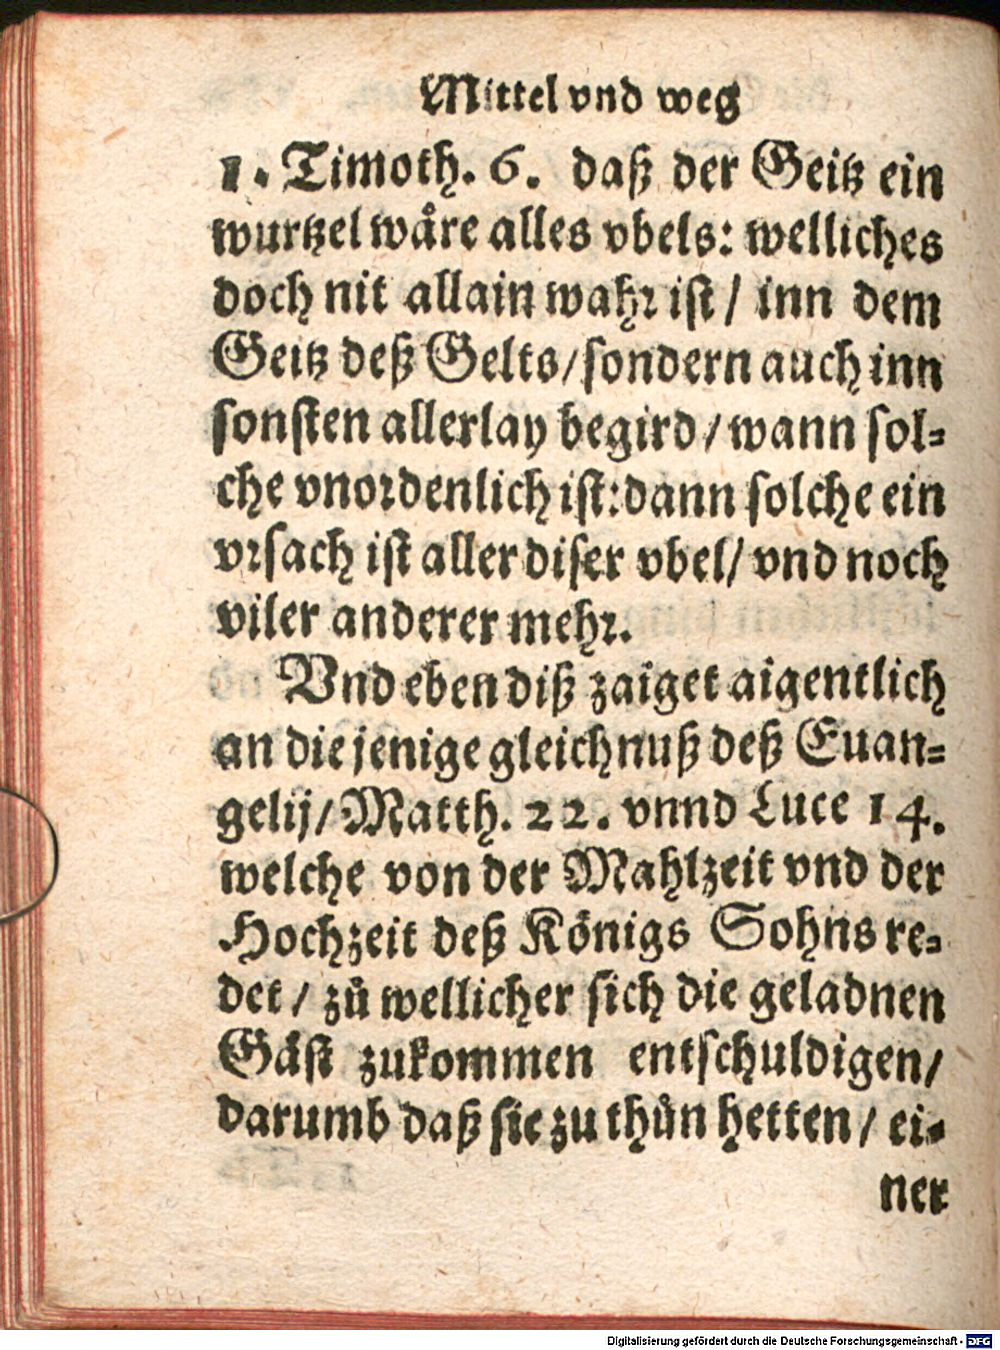 Mittel vnd weg
1. Timoth. 6. daß der Geitz ein
wurtzel wåre alles vbels: welliches
doch nit allain wahr ist / inn dem
Geitz deß Gelts / sondern auch inn
sonsten allerlay begird / wann sol-
che vnordenlich ist: dann solche ein
vrsach ist aller diser vbel / vnd noch
viler anderer mehr.
Vnd eben diß zaiget aigentlich
an die jenige gleichnuß deß Euan-
gelij / Matth. 22. vnnd Luce 14.
welche von der Mahlzeit vnd der
Hochzeit deß Königs Sohns re-
det / zů wellicher sich die geladnen
Gäst zukommen entschuldigen /
darumb daß sie zu thůn hetten / ei-
ner
Digitalisierung gefördert durch die Deutsche Forschungsgemeinschaft - DFG